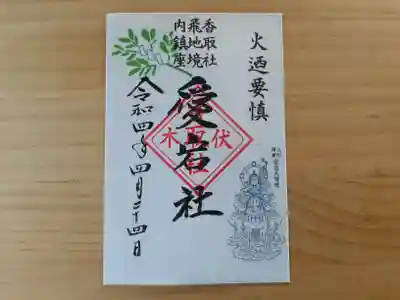 火迺要慎
香取社
飛地境
内鎮座
愛宕社
伏
取
木
社
令和四年四月二十四日